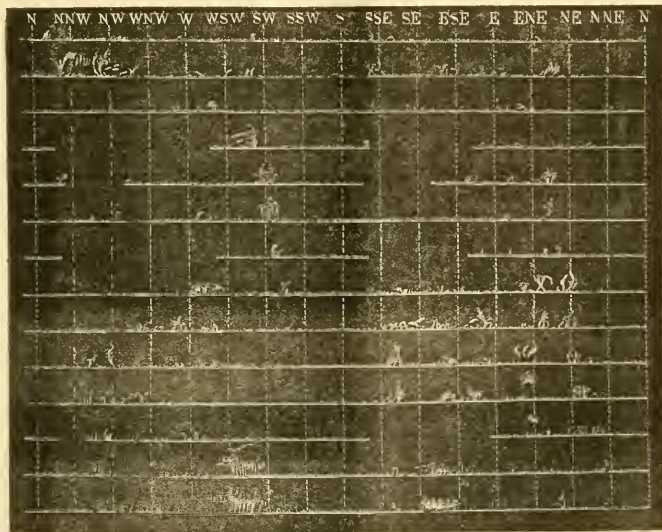 N NNW NW WNW W WSW SW SSW S SSE SE ESE E ENE NE NNE N